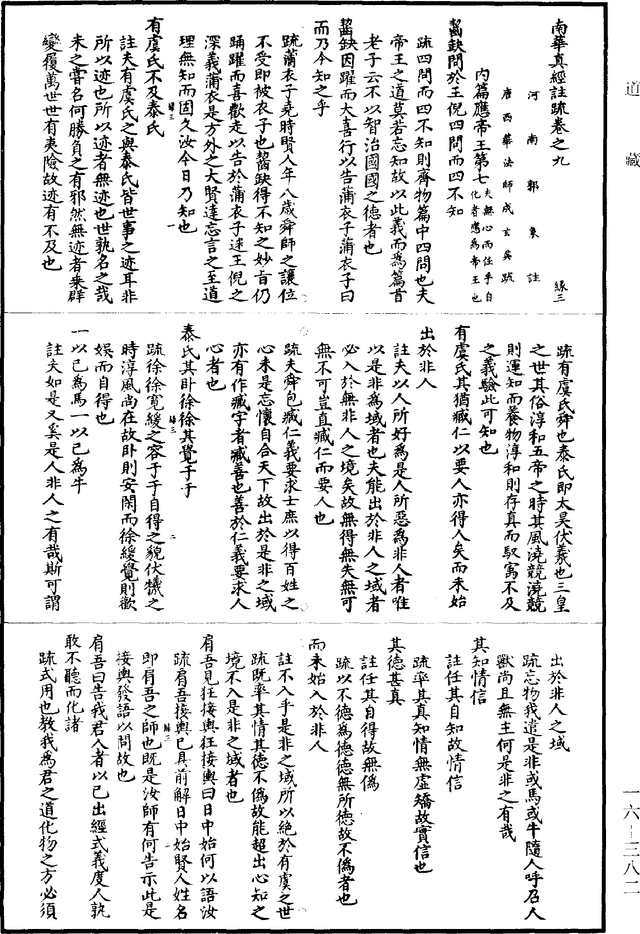 道藏
南華真經註疏卷之九　緣三
河南郭象註
唐西華法師成玄英疏
內篇應帝王第七夫無心而任乎自化者應為帝王也
齧缺問於王倪四問而四不知
疏四問而四不知則齊物篇中四問也夫
帝王之道莫若忘知故以此義而為篇首
老子云不以智治國國之德者也
齧缺因躍而大喜行以告蒲衣子蒲衣子曰
而乃今知之乎
疏蒲衣子堯時賢人年八歲舜師之讓位
不受即被衣子也齧缺得不知之妙旨仍
踊躍而喜歡走以告於蒲衣子述王倪之
深義蒲衣是方外之大賢達忘言之至道
理無知而固久汝今日乃知也
有虞氏不及泰氏
註夫有虞氏之與泰氏皆世事之迹耳非
所以迹也所以迹者無迹也世孰名之哉
未之嘗名何勝負之有邪然無迹者乘群
變履萬世世有夷險故迹有不及也
疏有虞氏舜也泰氏即太昊伏羲也三皇
之世其俗淳和五帝之時其風澆競澆競
則運知而養物淳和則存真而馭㝢不及
之義驗此可知也
有虞氏其猶臧仁以要人亦得人矣而未始
出於非人
註夫以人所好為是人所惡為非人者唯
以是非為域者也夫能出於非人之域者
必入於無非人之境矣故無得無失無可
無不可豈直臧仁而要人也
疏夫舜包臧仁義要求士庶以得百姓之
心未是忘懷自合天下故出於是非之域
亦有作臧字者臧善也善於仁義要求人
心者也
泰氏其卧徐徐其覺于于
疏徐徐寬緩之容于于自得之貌伏犧之
時淳風尚在故卧則安閑而徐緩覺則歡
娛而自得也
一以己為馬一以己為牛
註夫如是又奚是人非人之有哉斯可謂
出於非人之域
疏忘物我遺是非或馬或牛隨人呼召人
獸尚且無主何是非之有哉
其知情信
註任其自知故情信
疏率其真知情無虛矯故實信也
其德甚真
註任其自得故無偽
疏以不德為德德無所德故不偽者也
而未始入於非人
註不入乎是非之域所以絕於有虞之世
疏既率其情其德不偽故能超出心知之
境不入是非之域者也
肩吾見狂接輿狂接輿曰日中始何以語汝
疏肩吾接輿已具前解日中始賢人姓名
即肩吾之師也既是汝師有何告示此是
接輿發語以問故也
肩吾曰告我君人者以己出經式義度人孰
敢不聽而化諸
疏式用也教我為君之道化物之方必須
一六－三八二